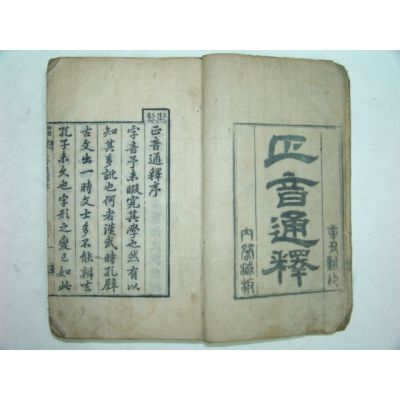 辛丑
正音通釋
內閣藏板
御製
正音通釋序
字音予未暇究其學也然有以
知其多訛也何者漢武時孔壁
古文出一時文士多不能辨去
孔子未久也字形之變已如此